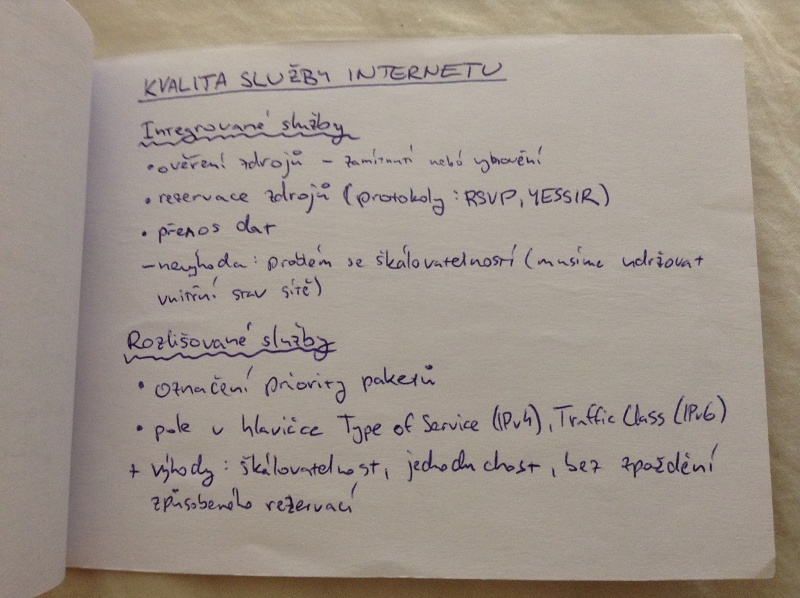 KVALITA SLUŽBY INTERNETU
Integrované služby
• ověření zdrojů - zamítnutí nebo vyhovění
• rezervace zdrojů (protokoly: RSVP, YESSIR)
• přenos dat
- nevýhoda: problém se škálovatelností (musíme udržovat
vnitřní stav sítě)
Rozlišované služby
• označení priority paketů
• pole v hlavičce Type of Service (IPv4), Traffic Class (IPv6)
+ výhody: škálovatelnost, jednoduchost, bez zpoždění
způsobeného rezervací